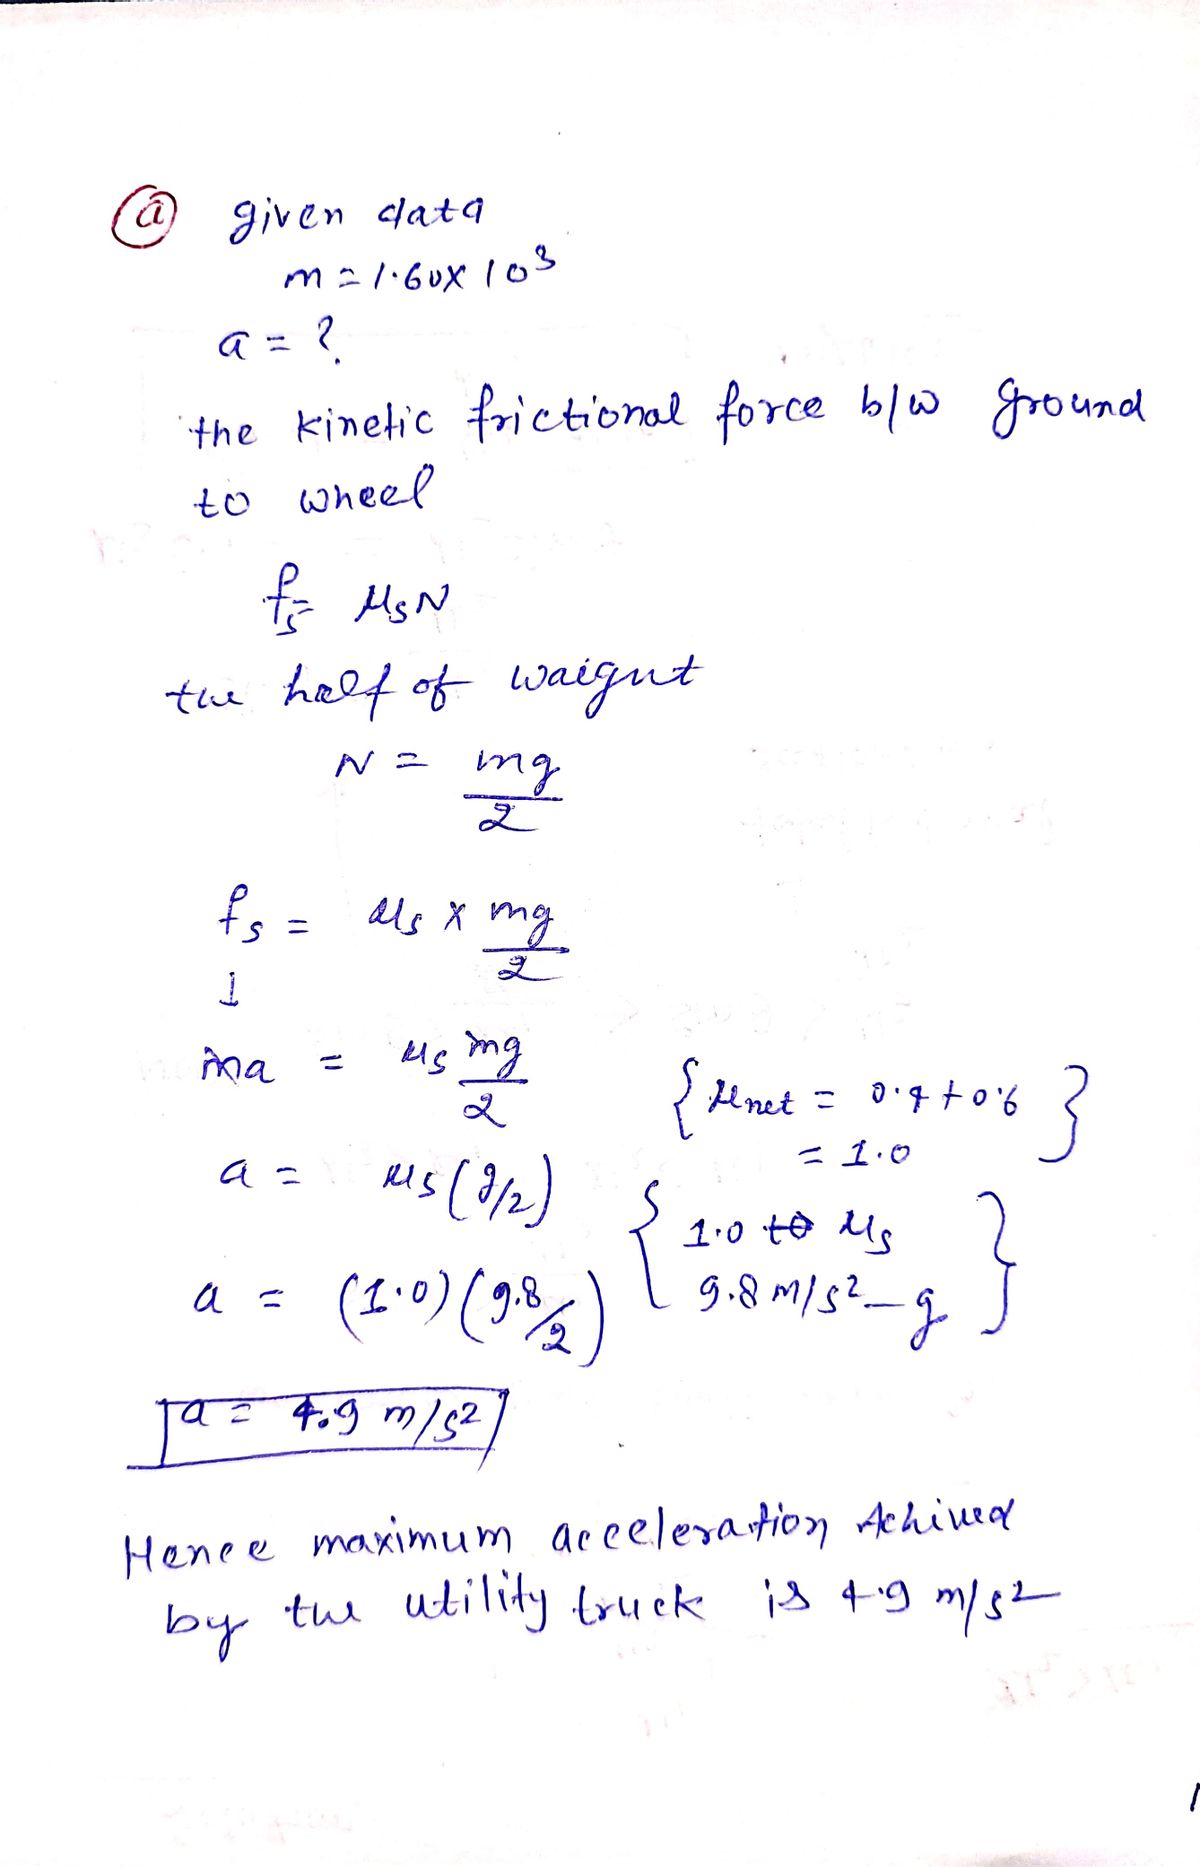 (a) given data
m = 1.60 x 10³
a = ?
the kinetic frictional force b/w ground
to wheel
fs = μsN
the half of waigut
N = mg/2
fs = μs x mg/2
↓
ma = μs mg/2 { μnet = 0.4 + 0.6
= 1.0 }
a = μs (g/2) { 1.0 to μs
a = (1.0) (9.8/2) 9.8 m/s² – g }
a = 4.9 m/s²
Hence maximum acceleration Achived
by the utility truck is 4.9 m/s²
1